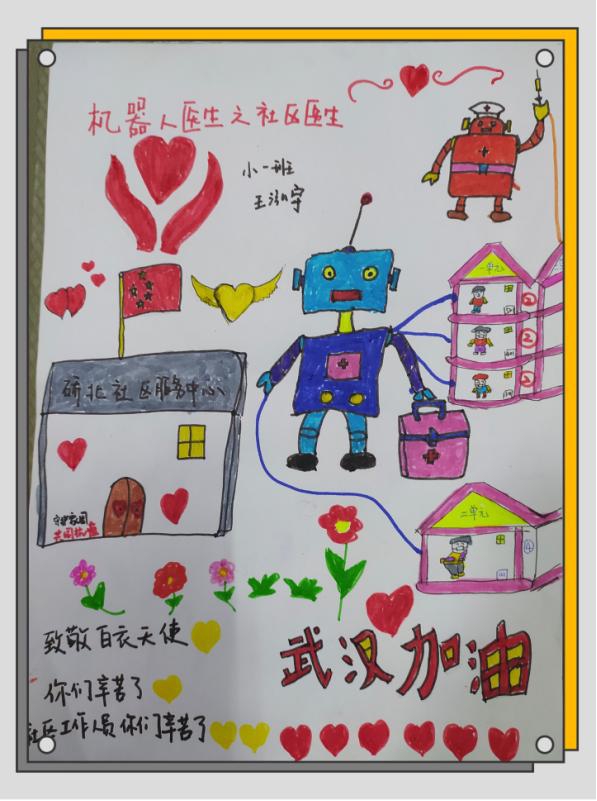 机器人医生之社区医生
小一班
一单元
北社区服务中心
二单元
守护家园
共同抗疫
致敬白衣天使
武汉加油
你们辛苦了
社区工作员你们辛苦了